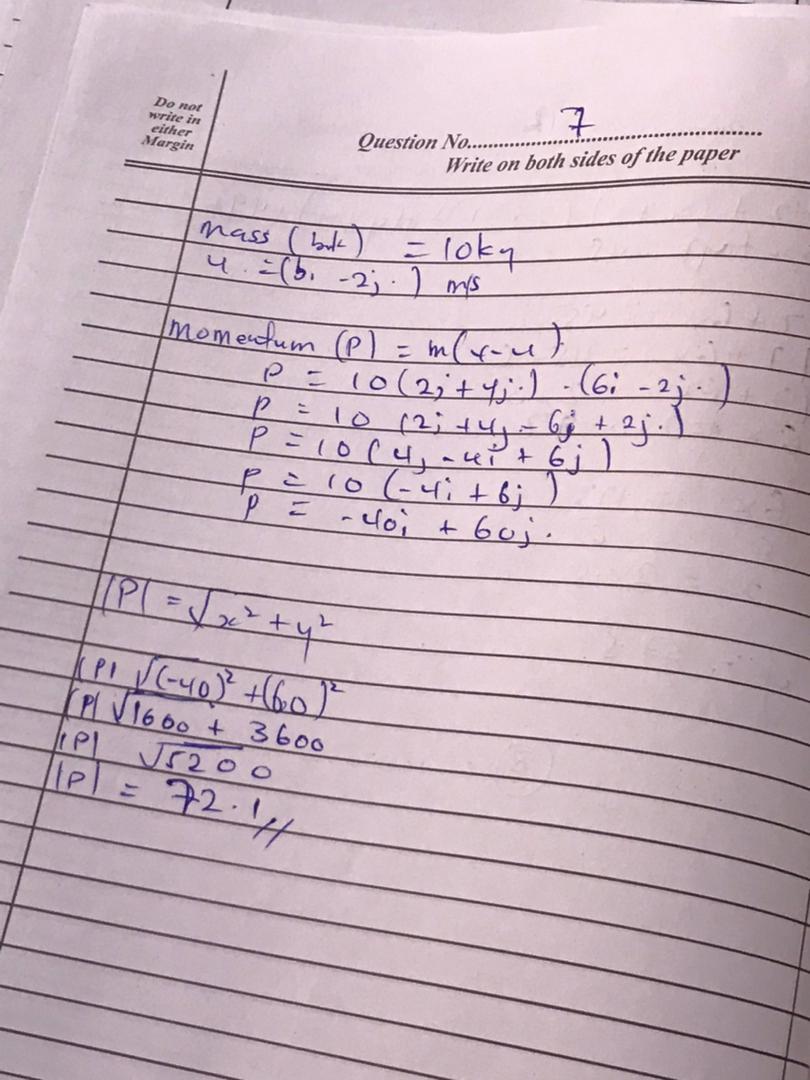 Do not
write in
either
Margin
Question No. 7
Write on both sides of the paper
Mass ( ) = 10kg
u = (6i -2j.) m/s
Momentum (P) = m(v-u)
P = 10(2i + 4j.) - (6i - 2j.)
P = 10 (2i + 4j - 6j + 2j.)
P = 10 (4j - 4i + 6j)
P = 10 (-4i + 6j)
P = -40i + 60j.
|P| = √x² + y²
|P| √(-40)² + (60)²
|P| √1600 + 3600
|P| √5200
|P| = 72.1//